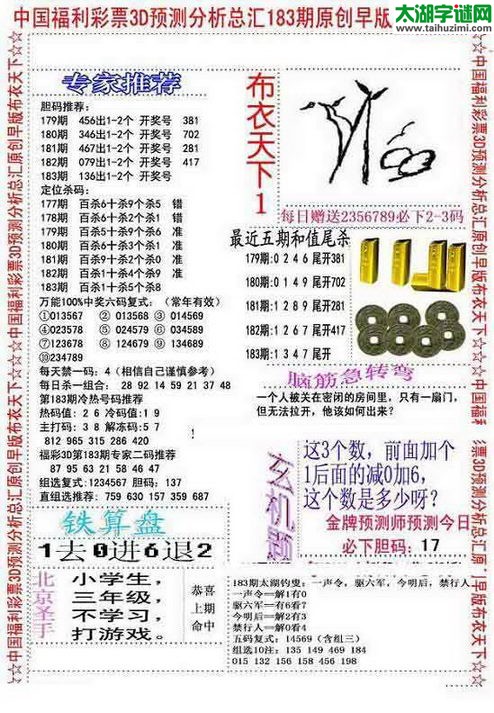 太湖字谜网
www.taihuzimi.com
中国福利彩票3D预测分析总汇183期原创早版
☆中国福利彩票3D预测分析总汇原创早版布衣天下☆
专家推荐
胆码推荐:
179期 456出1-2个 开奖号 381
180期 346出1-2个 开奖号 702
181期 467出1-2个 开奖号 281
182期 079出1-2个 开奖号 417
183期 136出1-2个 开奖号
定位杀码:
177期 百杀6十杀9个杀5 错
178期 百杀6十杀2个杀1 错
179期 百杀4十杀3个杀6 准
180期 百杀9十杀1个杀6 准
181期 百杀6十杀3个杀4 准
182期 百杀1十杀9个杀2 准
183期 百杀1十杀5个杀8
万能100%中奖六码复式: (常年有效)
①013567 ②013568 ③014569
④023578 ⑤024579 ⑥034589
⑦123678 ⑧124679 ⑨134689
⑩234789
每天禁一码: 4 (相信自己谨慎参考)
每日杀一组合: 28 92 14 59 21 37 48
第183期冷热号码推荐
热码值: 2 6 冷码值: 1 9
主打码: 3 8 解冻码: 5 7
812 965 315 286 420
福彩3D第183期专家二码推荐
87 95 63 21 58 46 47
组选复式: 1234567 胆码: 137
直组选推荐: 759 630 157 359 687
布衣天下1
每日赠送2356789必下2-3码
最近五期和值尾杀
179期:0 2 4 6 尾开381
180期:0 1 4 9 尾开702
181期:1 2 8 9 尾开281
182期:1 2 6 7 尾开417
183期:1 3 4 7 尾开
脑筋急转弯
一个人被关在密闭的房间里, 只有一扇门,
但无法拉开, 他该如何出来?
玄机题
这3个数, 前面加个
1后面的减0加6,
这个数是多少呀?
金牌预测师预测今日
必下胆码: 17
铁算盘
1去0进6退2
北京圣手
小学生,
三年级,
不学习,
打游戏。
恭喜
上期
命中
183期太湖钓叟: 一声令, 驱六军, 今明后, 禁行人。
一声令==解1有0
驱六军==有6看7
今明后==解2有3
禁行人==解0看4
五码复式: 14569 (含组三)
组选10注: 135 149 469 184
015 132 156 158 456 198